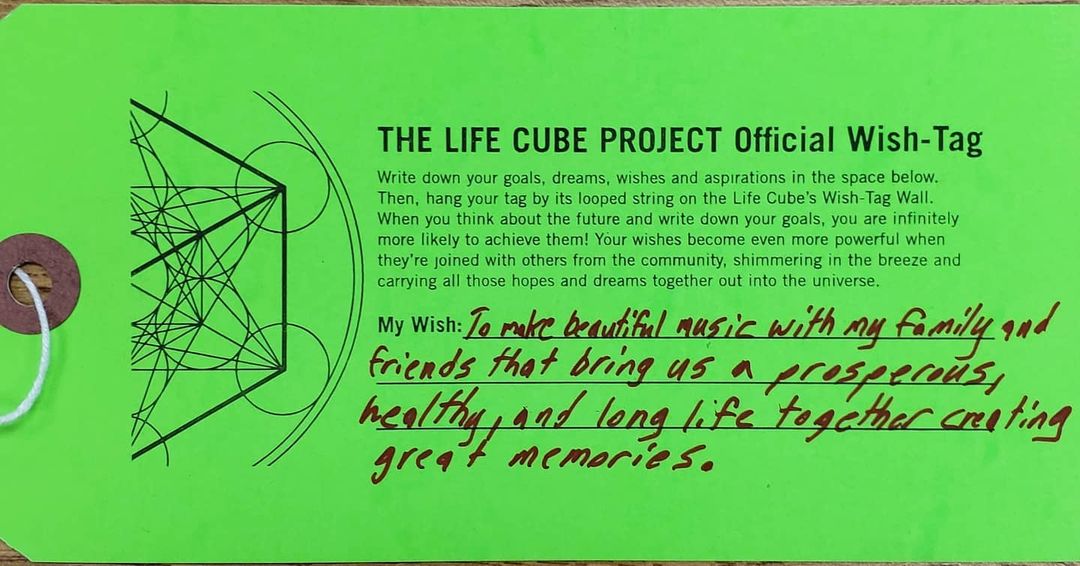 THE LIFE CUBE PROJECT Official Wish-Tag
Write down your goals, dreams, wishes and aspirations in the space below.
Then, hang your tag by its looped string on the Life Cube's Wish-Tag Wall.
When you think about the future and write down your goals, you are infinitely
more likely to achieve them! Your wishes become even more powerful when
they're joined with others from the community, shimmering in the breeze and
carrying all those hopes and dreams together out into the universe.
My Wish: To make beautiful music with my family and
friends that bring us a prosperous,
healthy, and long life together creating
great memories.